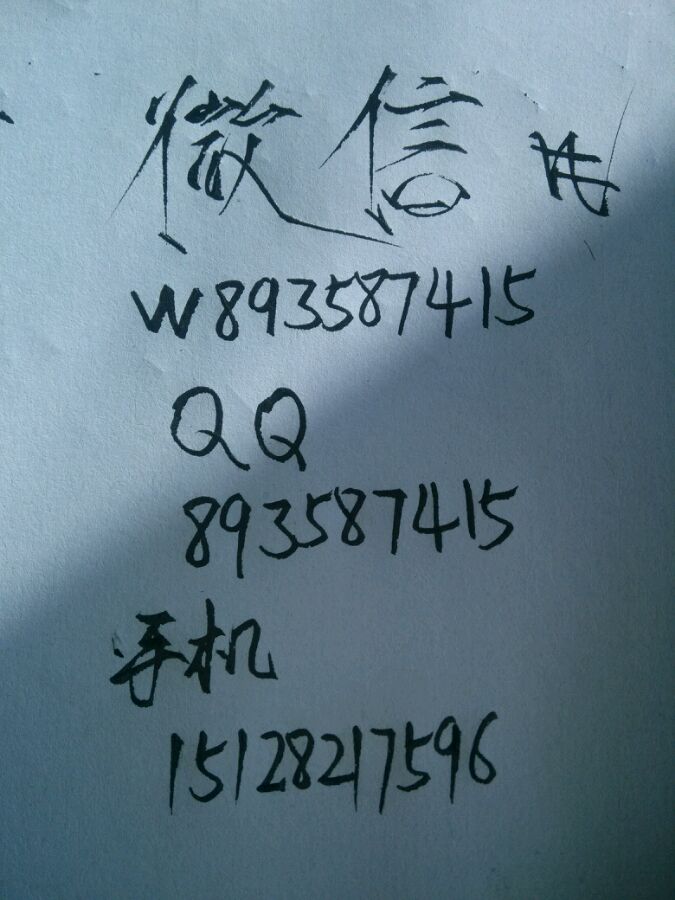 微信
W893587415
QQ
893587415
手机
15128217596